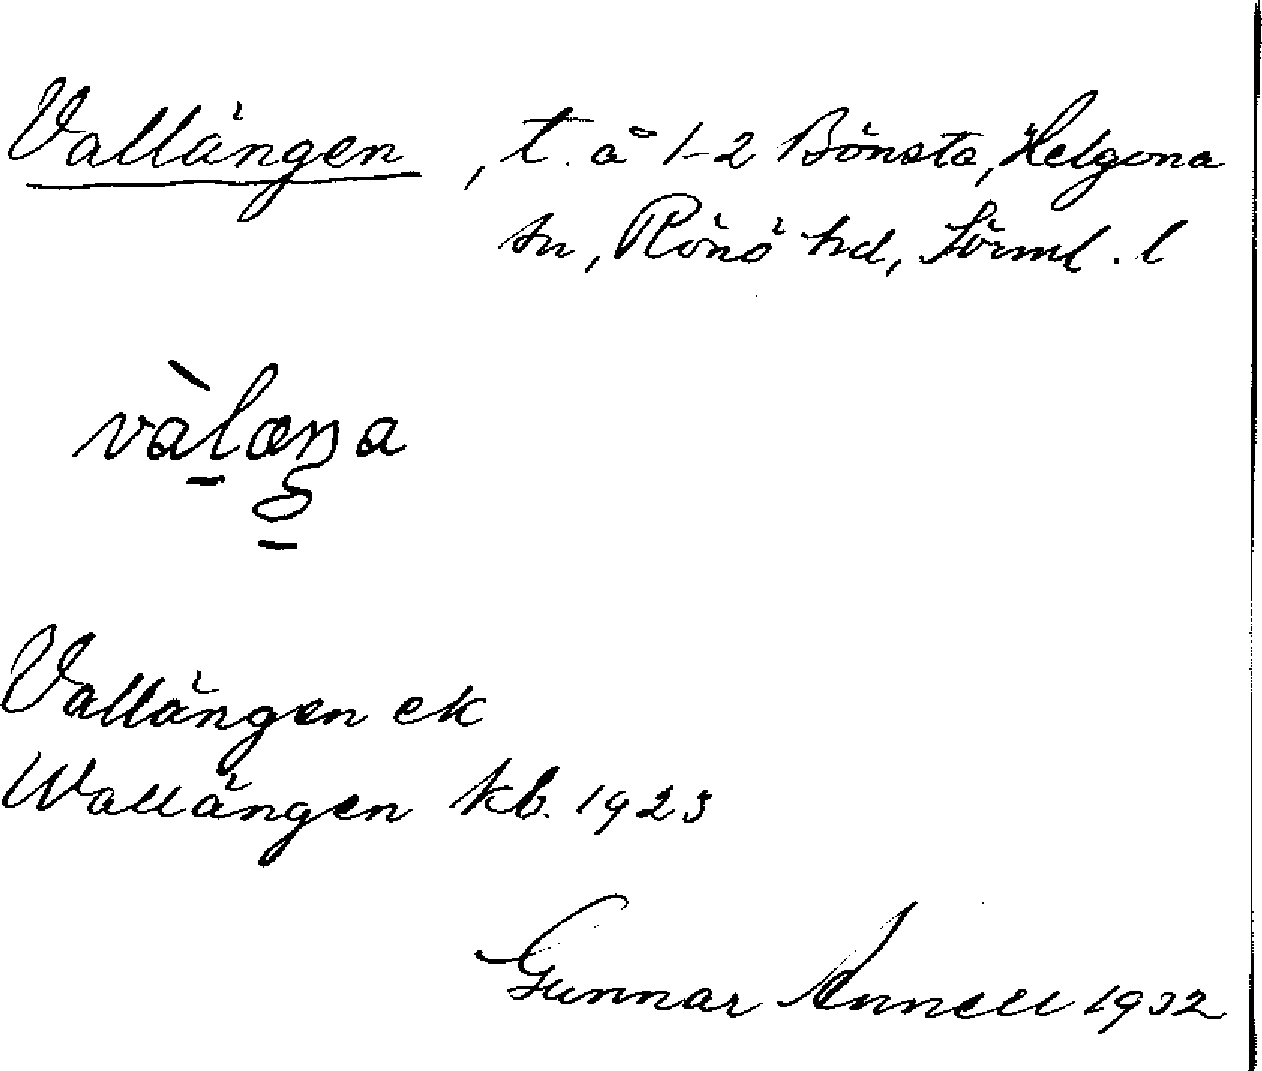 Vallängen, t. å 1-2 Bönsta, Helgona
sn, Rönö hd, Sörml. l
vàlæŋa
Vallängen ek
Wallängen kb. 1923
Gunnar Annell 1932